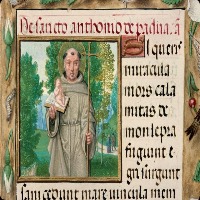 De sancto anthonio de padua. a
Si queris
miracula
mors cala
mitas de
mon lepra
fugiunt e
gri surgunt
sani cedunt mare vincula mem